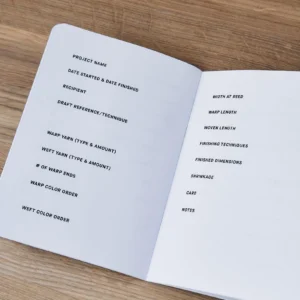 PROJECT NAME
DATE STARTED & DATE FINISHED
RECIPIENT
DRAFT REFERENCE/TECHNIQUE
WARP YARN (TYPE & AMOUNT)
WEFT YARN (TYPE & AMOUNT)
# OF WARP ENDS
WARP COLOR ORDER
WEFT COLOR ORDER
WIDTH AT REED
WARP LENGTH
WOVEN LENGTH
FINISHING TECHNIQUES
FINISHED DIMENSIONS
SHRINKAGE
CARE
NOTES